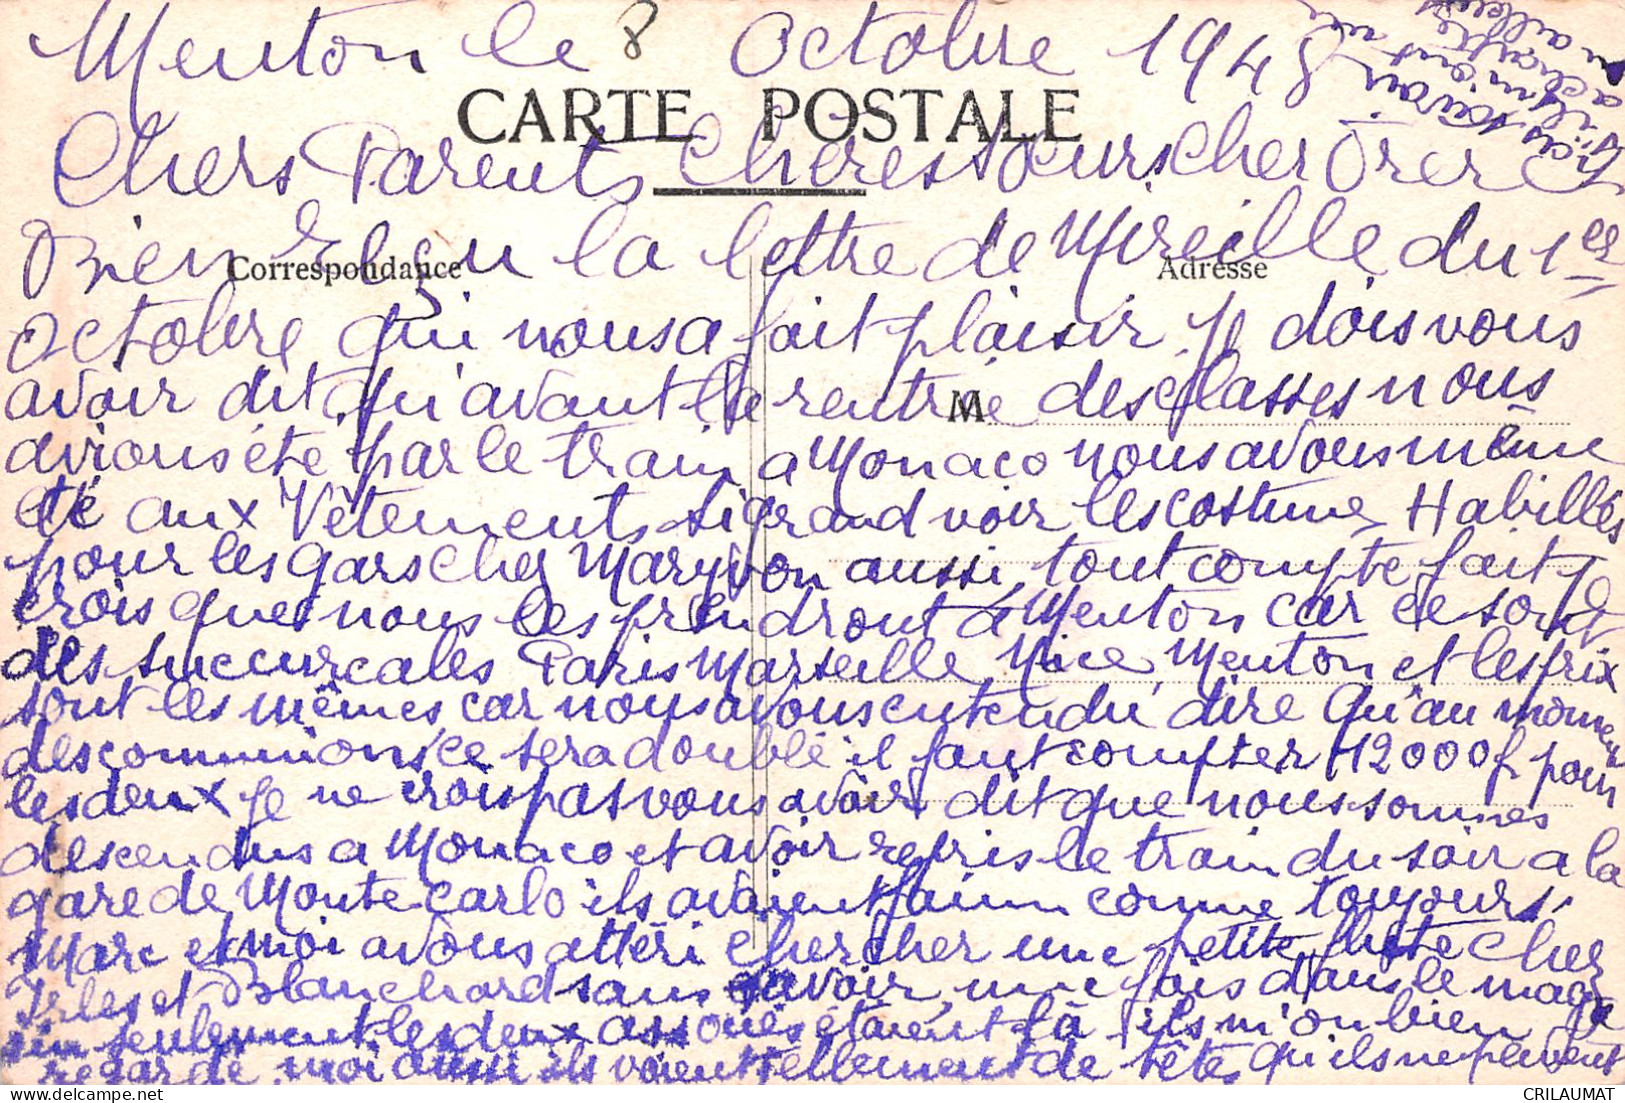 Menton le 8 Octobre 1948
CARTE POSTALE
Chers Parents Chères Soeurs Cher Frer
Correspondance
Adresse
Bien Reçu la lettre de Mireille du 1er
Octobre qui nous a fait plaisir je dois vous
avoir dit qu'avant la rentrée des classes nous
M
avions été par le train a Monaco nous avons même
été aux Vêtements Sigrand voir les costumes Habillés
pour les gars chez Maryvon aussi, tout compte fait je
crois que nous les prendront a Menton car ce sont
des succurcales Paris Marseille, Nice, Menton et les prix
sont les mêmes car nous avons entendu dire qu'au momen
des communions ce sera doublé il faut compter 12000f pour
les deux je ne crois pas vous avoir dit que nous sommes
descendus a Monaco et avoir repris le train du soir a la
gare de Monte Carlo ils avaient faim comme toujours.
Marc et moi avons attéri chercher une petite flute chez
et Blanchard sans savoir, une fois dans le maga
sin seulement les deux associés étaient là ils m'on bien
regardé, moi aussi ils voient tellement de têtes qu'ils ne peuvent
CRILAUMAT